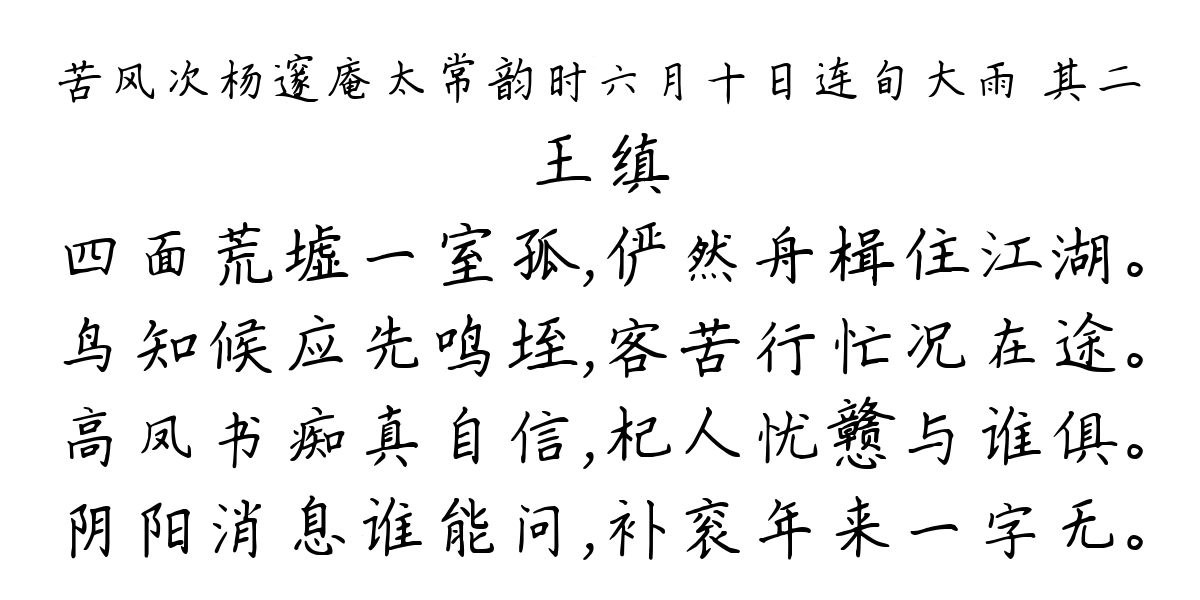 苦风次杨邃庵太常韵时六月十日连旬大雨 其二
王缜
四面荒墟一室孤,俨然舟楫住江湖。
鸟知候应先鸣垤,客苦行忙况在途。
高凤书痴真自信,杞人忧戆与谁俱。
阴阳消息谁能问,补衮年来一字无。